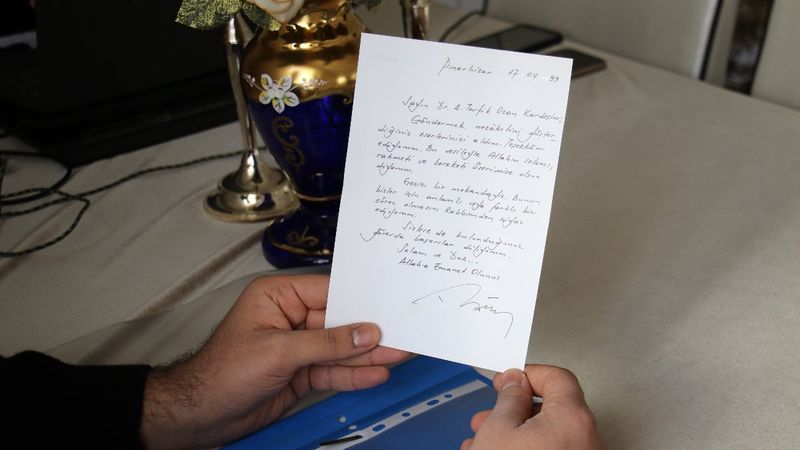 Pınarhisar 17.04.99
Sayın Dr. A. Tevfik Ozan Kardeşim;
Göndermek nezâketini göster-
diğiniz eserlerinizi aldım. Teşekkür
ediyorum. Bu vesileyle Allahın selamı,
rahmeti ve bereketi üzerimize olsun
diyorum.
Geçici bir mekandayız. Bunun
bizler için anlamlı, veya farklı bir
süreç olmasını Rabbimden niyaz
ediyorum.
Sizlere de bulunduğunuz
görevde başarılar diliyorum.
Selam ve Dua...
Allaha Emanet Olunuz.